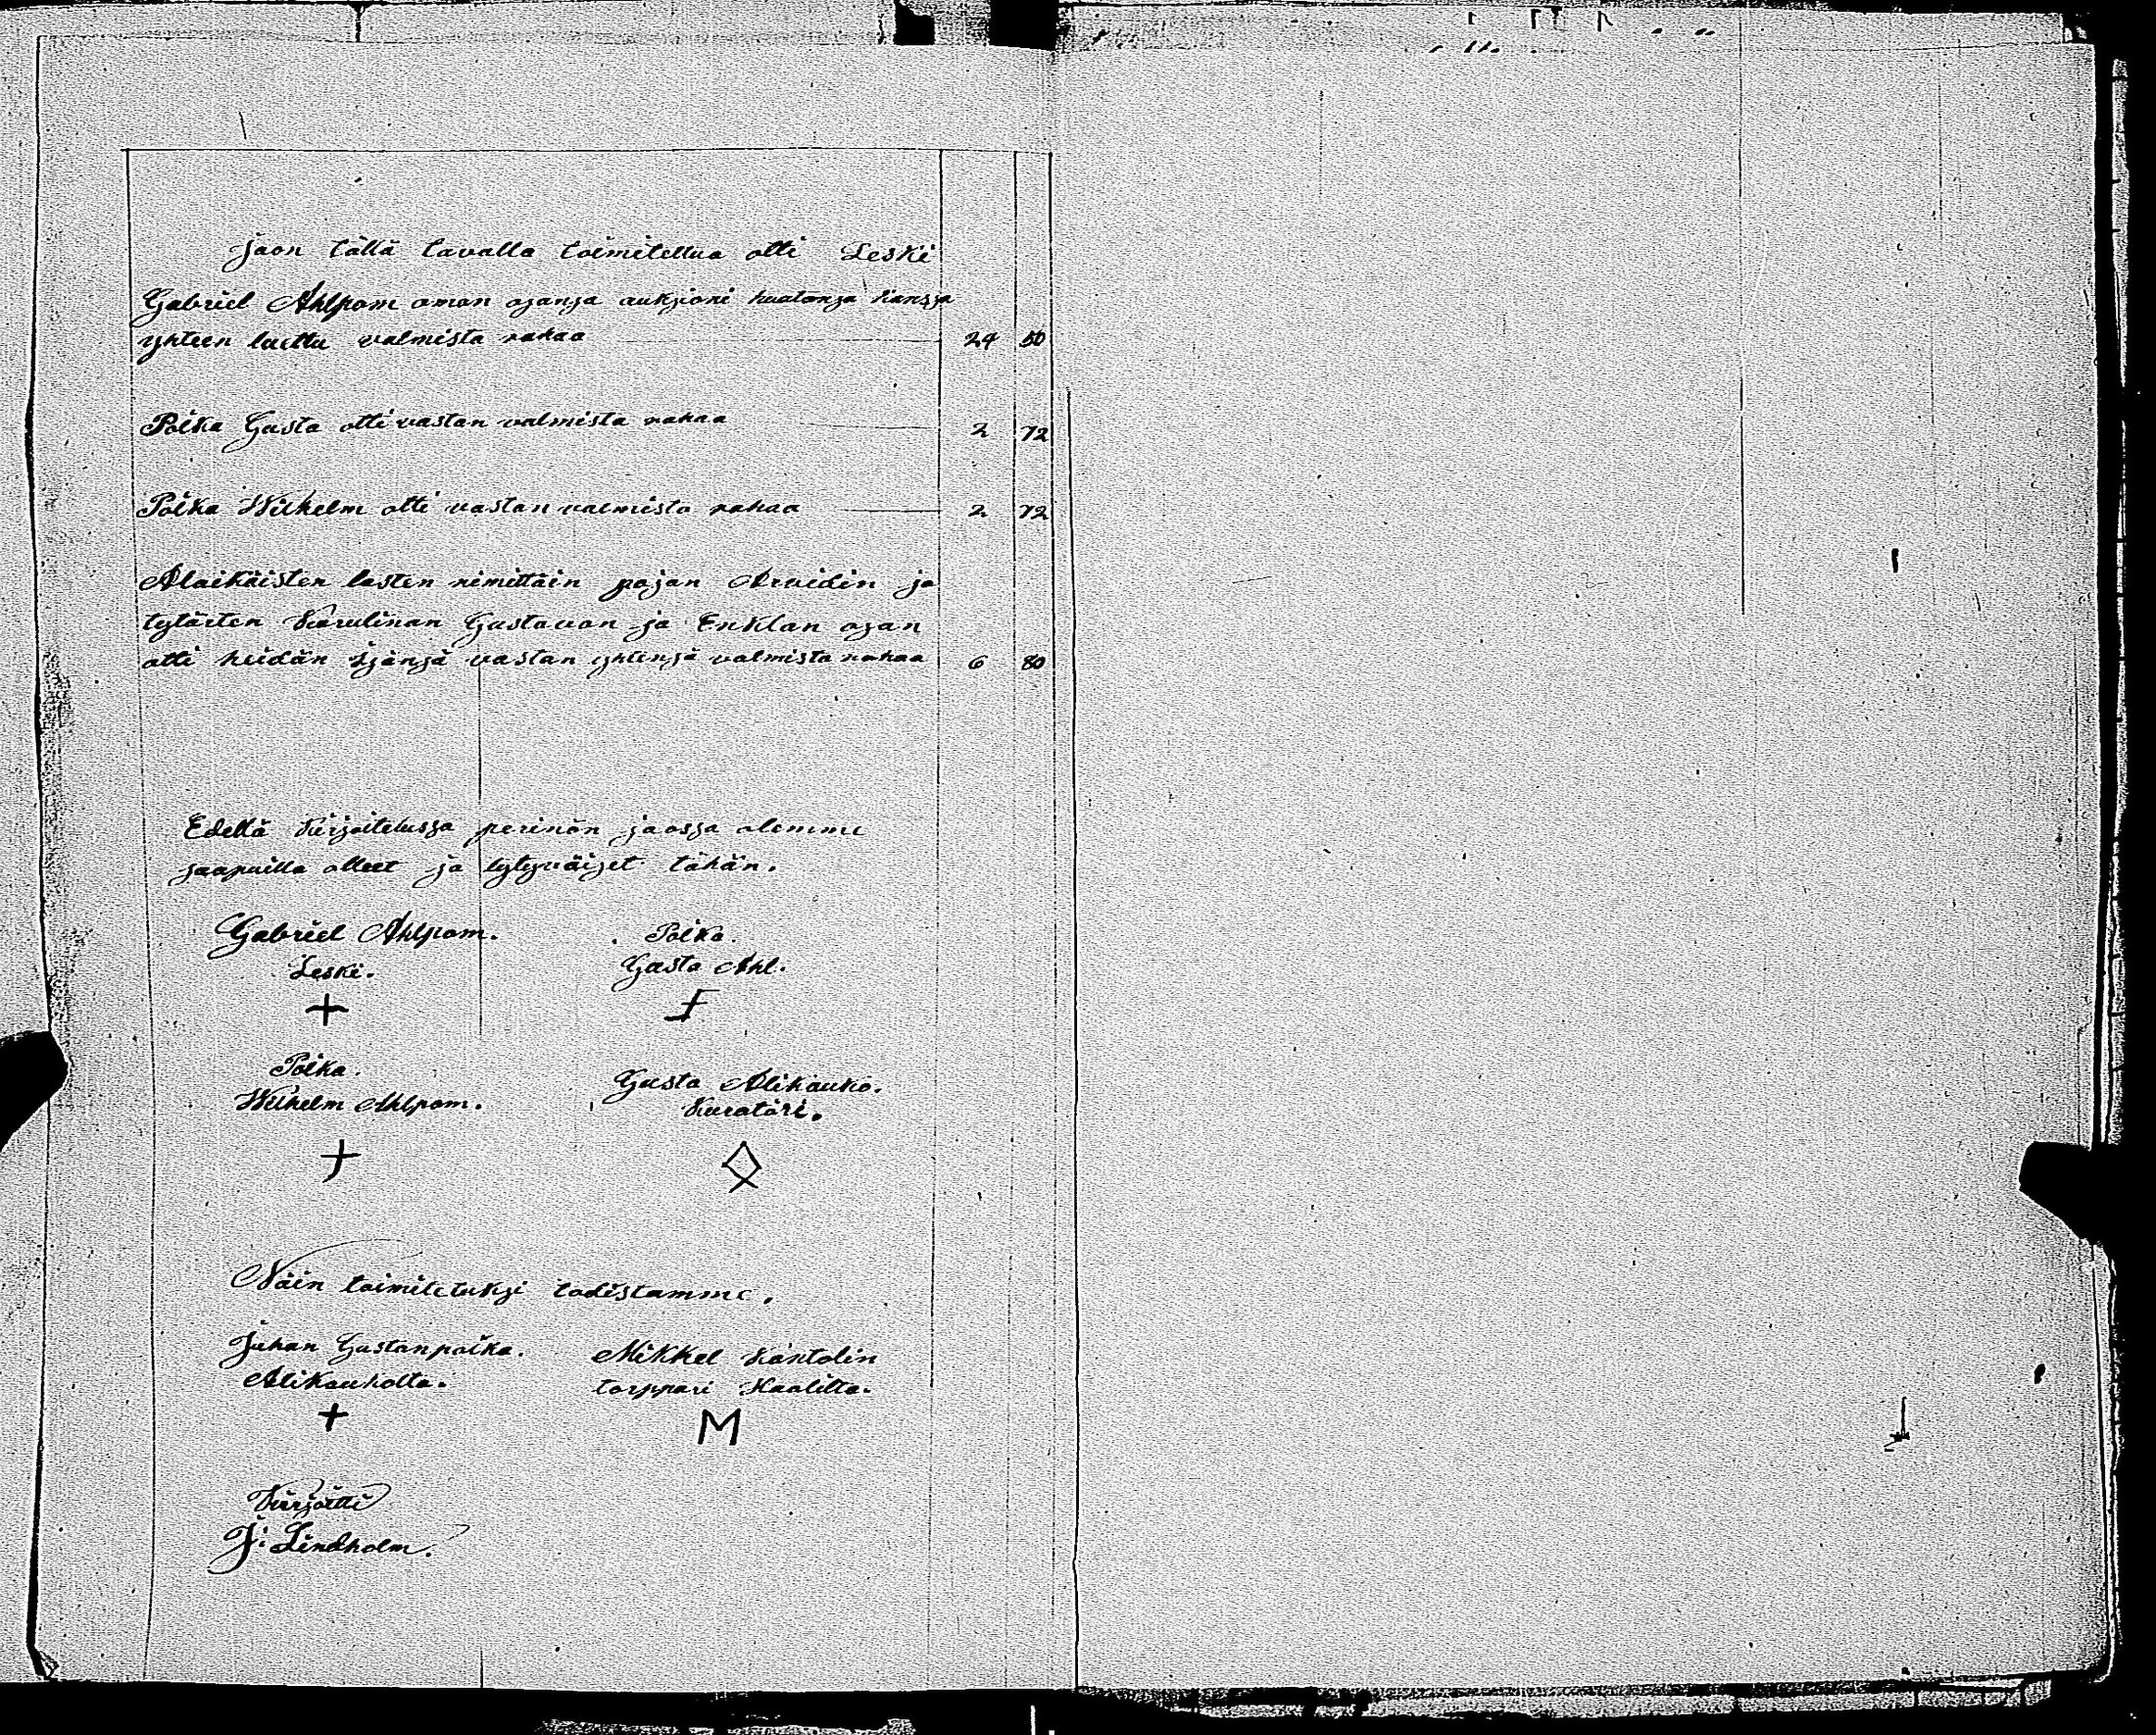 Jaon tällä tavalla toimitettua otti Leski
Gabriel Ahlpom oman osansa auksioni huutonsa kanssa
yhteen luettu valmista rahaa 24 50
Poika Gusta otti vastan valmista rahaa 2 72
Poika Wilhelm otti vastan valmista rahaa 2 72
Alaikäisten lasten nimittäin pojan Arvidin ja
tytärten Karulinan Gustavan ja Enklan osan
otti heidän Isänsä vastan yhtensä valmista rahaa 6 80
Edellä kirjoitetussa perinön jaossa olemme
saapuilla olleet ja tytyväiset tähän.
Gabriel Ahlpom.
Leski.
Poika.
Gusta Ahl.
Poika.
Wilhelm Ahlpom.
Gusta Alikauko.
Kuratöri.
Näin toimitetuksi todistamme.
Juhan Gustanpoika.
Alikauholta.
Mikkel Käntolin
torppari Haalilta.
M
Kirjoitti
J: Lindholm.